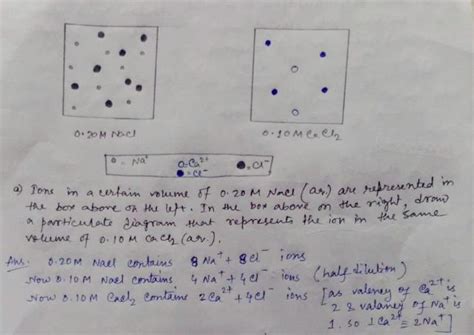 0.20M NaCl
0.10M CaCl2
o - Na+ o = Ca2+ ● = Cl- ●. Cl-
a) Ions in a certain volume of 0.20M NaCl (aq.) are represented in
the box above on the left. In the box above on the right, draw
a particulate diagram that represents the ion in the same
volume of 0.10M CaCl2 (aq.).
Ans. 0.20M NaCl contains 8Na+ + 8Cl- ions
Now 0.10M NaCl contains 4Na+ + 4Cl- ions (half dilution)
Now 0.10M CaCl2 contains 2Ca2+ + 4Cl- ions [as valency of Ca2+ is
2 & valency of Na+ is
1. So 1Ca2+ = 2Na+]